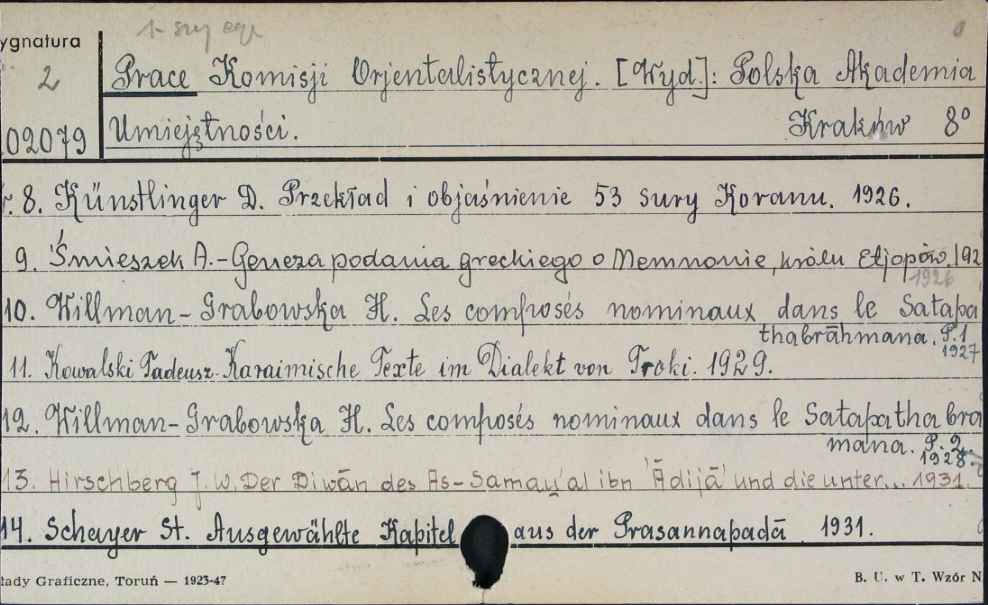 ygnatura
2
Prace Komisji Orjentalistycznej. [Wyd.]: Polska Akademia
02079 Umiejętności. Kraków 8°
8. Künstlinger D. Przekład i objaśnienie 53 sury Koranu. 1926.
9. Śmieszek A.-Geneza podania greckiego o Memnonie, królu Etjopów. 192
1926
10. Willman-Grabowska H. Les composés nominaux dans le Satapa
thabrāhmana. P.1
1927
11. Kowalski Tadeusz-Karaimische Texte im Dialekt von Troki. 1929.
12. Willman-Grabowska H. Les composés nominaux dans le Satapatha bra
mana. P.2
1928
13. Hirschberg J.W. Der Dīwān des As-Samau'al ibn 'Ādijā' und die unter... 1931.
14. Schayer St. Ausgewählte Kapitel aus der Prasannapadā 1931.
łady Graficzne, Toruń — 1923-47 B. U. w T. Wzór N